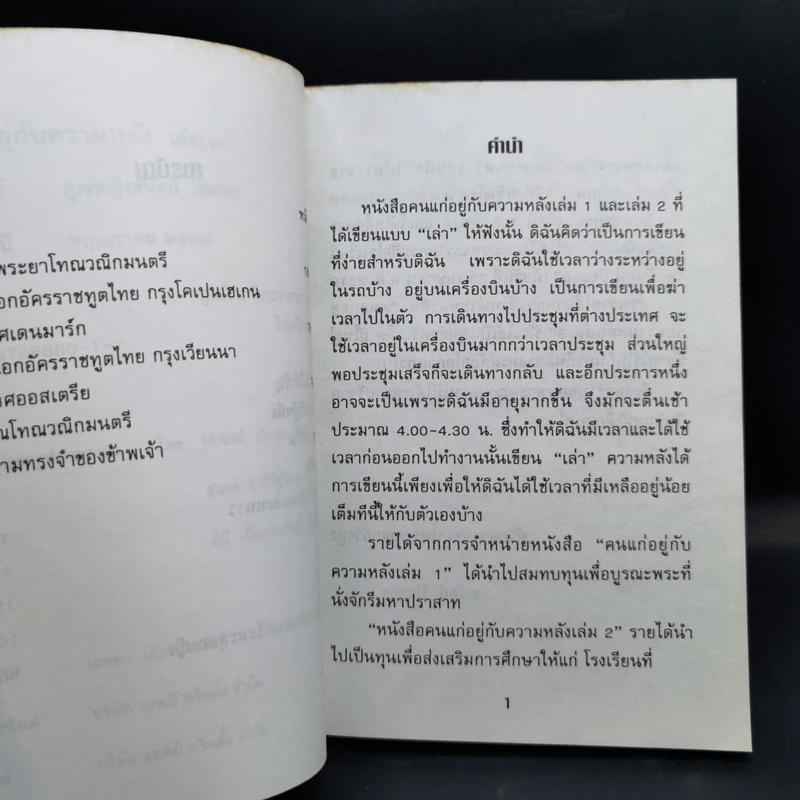 พระยาโทณวณิกมนตรี
เอกอัครราชทูตไทย กรุงโคเปนเฮเกน
ศเดนมาร์ก
เอกอัครราชทูตไทย กรุงเวียนนา
ศออสเตรีย
ณโทณวณิกมนตรี
ามทรงจำของข้าพเจ้า
คำนำ
หนังสือคนแก่อยู่กับความหลังเล่ม 1 และเล่ม 2 ที่
ได้เขียนแบบ “เล่า” ให้ฟังนั้น ดิฉันคิดว่าเป็นการเขียน
ที่ง่ายสำหรับดิฉัน เพราะดิฉันใช้เวลาว่างระหว่างอยู่
ในรถบ้าง อยู่บนเครื่องบินบ้าง เป็นการเขียนเพื่อฆ่า
เวลาไปในตัว การเดินทางไปประชุมที่ต่างประเทศ จะ
ใช้เวลาอยู่ในเครื่องบินมากกว่าเวลาประชุม ส่วนใหญ่
พอประชุมเสร็จก็จะเดินทางกลับ และอีกประการหนึ่ง
อาจจะเป็นเพราะดิฉันมีอายุมากขึ้น จึงมักจะตื่นเช้า
ประมาณ 4.00-4.30 น. ซึ่งทำให้ดิฉันมีเวลาและได้ใช้
เวลาก่อนออกไปทำงานนั้นเขียน “เล่า” ความหลังได้
การเขียนนี้เพียงเพื่อให้ดิฉันได้ใช้เวลาที่มีเหลืออยู่น้อย
เต็มทีนี้ให้กับตัวเองบ้าง
รายได้จากการจำหน่ายหนังสือ “คนแก่อยู่กับ
ความหลังเล่ม 1” ได้นำไปสมทบทุนเพื่อบูรณะพระที่
นั่งจักรีมหาปราสาท
“หนังสือคนแก่อยู่กับความหลังเล่ม 2” รายได้นำ
ไปเป็นทุนเพื่อส่งเสริมการศึกษาให้แก่ โรงเรียนที่
1